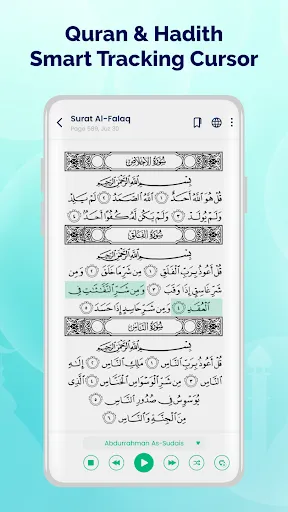 Quran & Hadith
Smart Tracking Cursor
Surat Al-Falaq
Page 589, Juz 30
سُورَةُ الإِخْلَاصِ
بِسْمِ ٱللَّهِ ٱلرَّحْمَٰنِ ٱلرَّحِيمِ
قُلْ هُوَ ٱللَّهُ أَحَدٌ ١ ٱللَّهُ ٱلصَّمَدُ ٢ لَمْ يَلِدْ
وَلَمْ يُولَدْ ٣ وَلَمْ يَكُن لَّهُۥ كُفُوًا أَحَدٌۢ ٤
سُورَةُ الفَلَقِ
بِسْمِ ٱللَّهِ ٱلرَّحْمَٰنِ ٱلرَّحِيمِ
قُلْ أَعُوذُ بِرَبِّ ٱلْفَلَقِ ١ مِن شَرِّ مَا خَلَقَ ٢ وَمِن
شَرِّ غَاسِقٍ إِذَا وَقَبَ ٣ وَمِن شَرِّ ٱلنَّفَّٰثَٰتِ فِى
ٱلْعُقَدِ ٤ وَمِن شَرِّ حَاسِدٍ إِذَا حَسَدَ ٥
سُورَةُ النَّاسِ
بِسْمِ ٱللَّهِ ٱلرَّحْمَٰنِ ٱلرَّحِيمِ
قُلْ أَعُوذُ بِرَبِّ ٱلنَّاسِ ١ مَلِكِ ٱلنَّاسِ ٢ إِلَٰهِ
ٱلنَّاسِ ٣ مِن شَرِّ ٱلْوَسْوَاسِ ٱلْخَنَّاسِ ٤ ٱلَّذِى
يُوَسْوِسُ فِى صُدُورِ ٱلنَّاسِ ٥
مِنَ ٱلْجِنَّةِ وَٱلنَّاسِ ٦
Abdurrahman As-Sudais